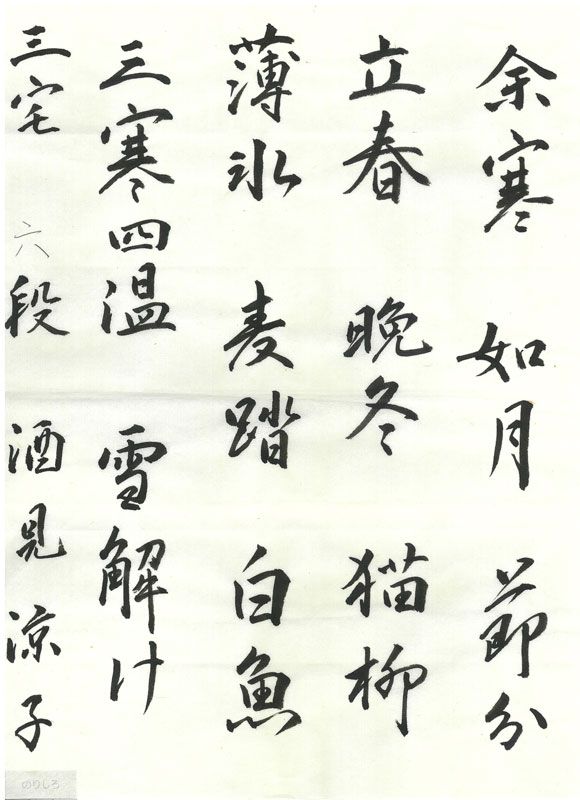 余寒 如月 節分
立春 晩冬 猫柳
薄氷 麦踏 白魚
三寒四温 雪解け
三宅 六段 酒見涼子
のりしろ